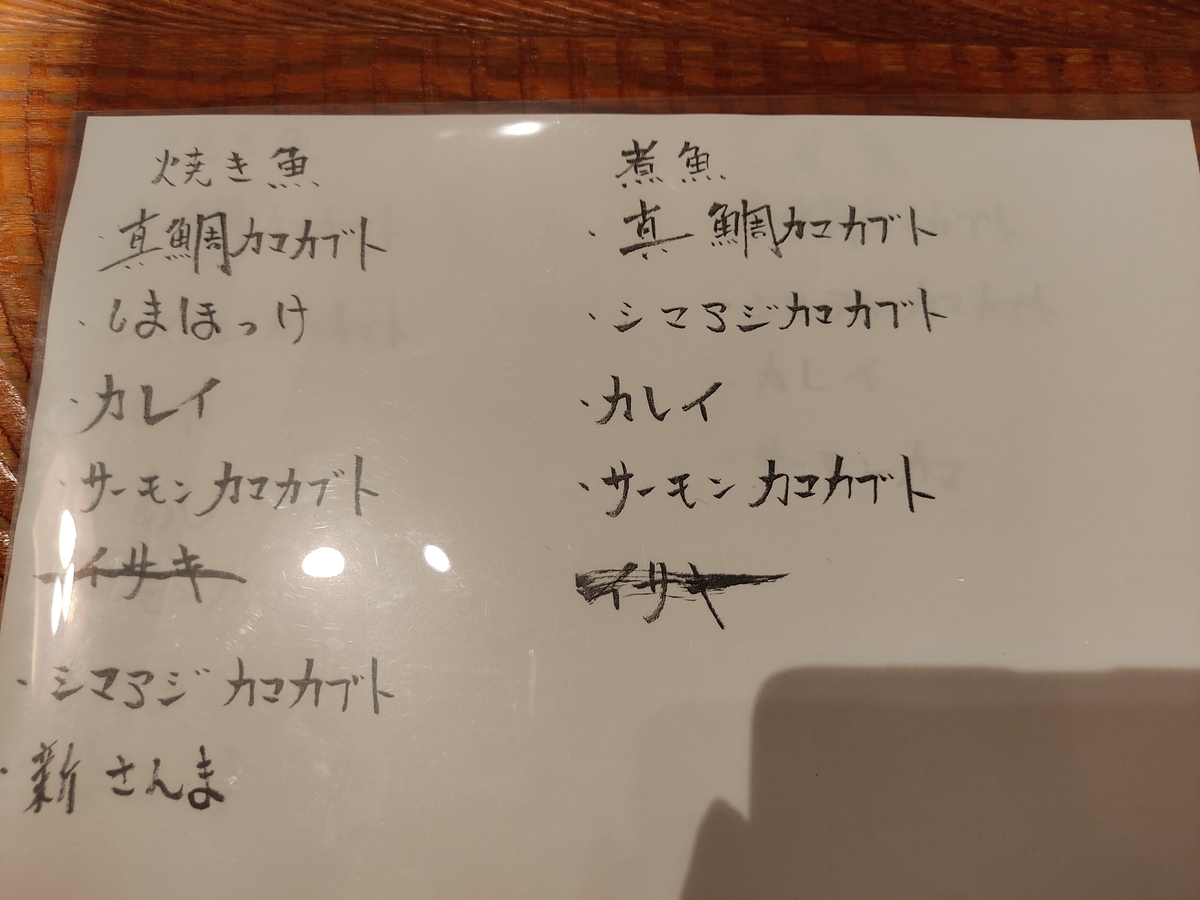 焼き魚
・真鯛カマカブト
・しまほっけ
・カレイ
・サーモンカマカブト
イサキ
・シマアジカマカブト
・新さんま
煮魚
・真鯛カマカブト
・シマアジカマカブト
・カレイ
・サーモンカマカブト
イサキ